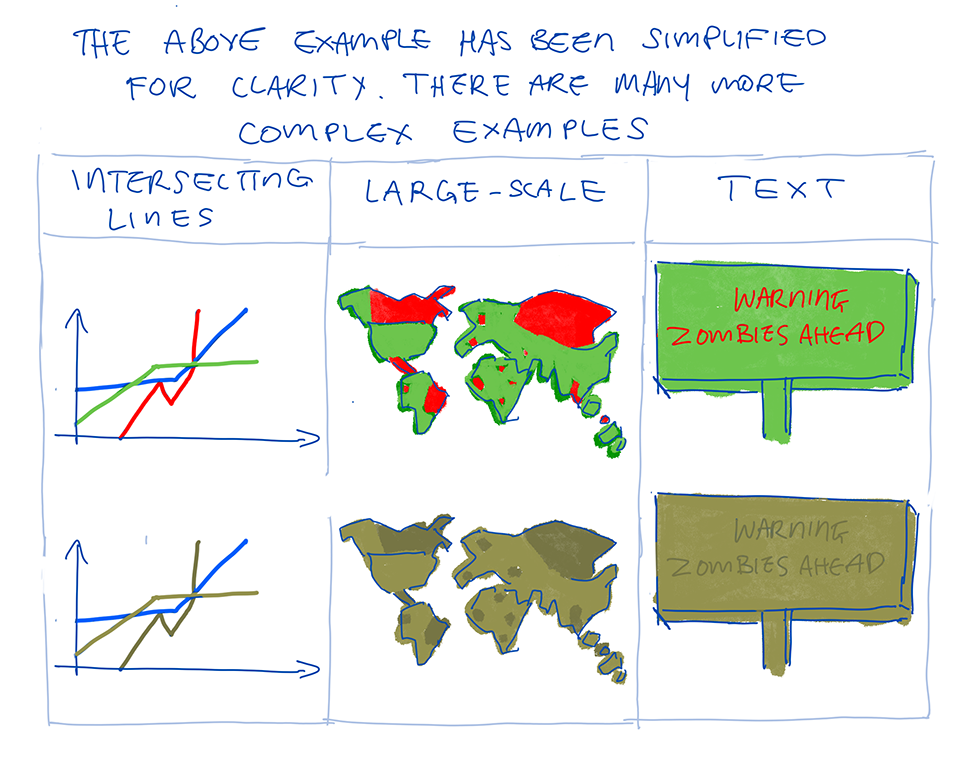 THE ABOVE EXAMPLE HAS BEEN SIMPLIFIED
FOR CLARITY. THERE ARE MANY MORE
COMPLEX EXAMPLES
INTERSECTING
LINES
LARGE-SCALE
TEXT
WARNING
ZOMBIES AHEAD
WARNING
ZOMBIES AHEAD